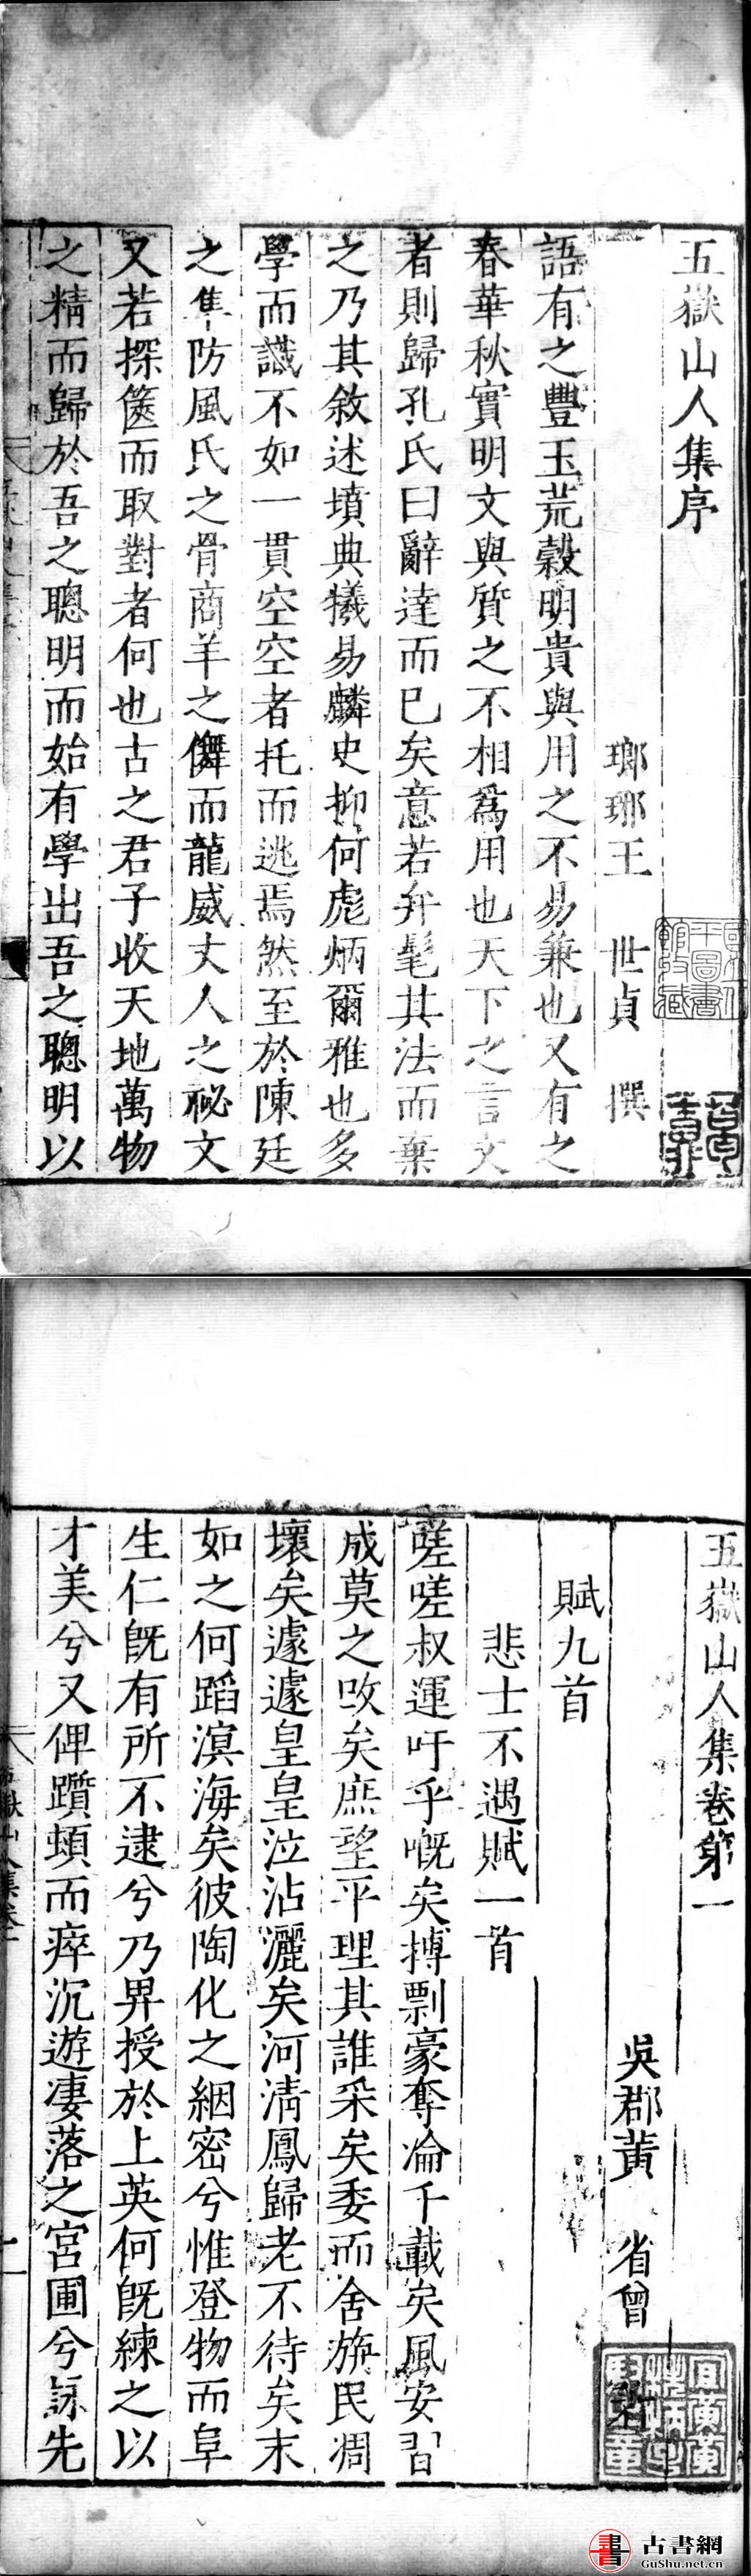 五嶽山人集序
瑯琊王世貞撰
語有之豐玉荒穀明貴與用之不易兼也又有之
春華秋實明文與質之不相爲用也天下之言文
者則歸孔氏曰辭達而已矣意若弁髦其法而棄
之乃其敘述墳典犧易麟史抑何彪炳爾雅也多
學而識不如一貫空空者托而逃焉然至於陳廷
之隼防風氏之骨商羊之儛而龍威丈人之祕文
又若探篋而取對者何也古之君子收天地萬物
之精而歸於吾之聰明而始有學出吾之聰明以
五嶽山人集卷第一
吳郡黃省曾
賦九首
悲士不遇賦一首
嗟嗟叔運吁乎嘅矣搏剽豪奪淪千載矣風安習
成莫之攺矣庶望平理其誰采矣委而舍旃民凋
壞矣遽遽皇皇泣沾灑矣河清鳳歸老不待矣末
如之何蹈溟海矣彼陶化之絪密兮惟登物而阜
生仁旣有所不逮兮乃畀授於上英何旣練之以
才美兮又俾躓頓而瘁沉遊淒落之宮圃兮詠先
書 古書網
GuShu.net.cn